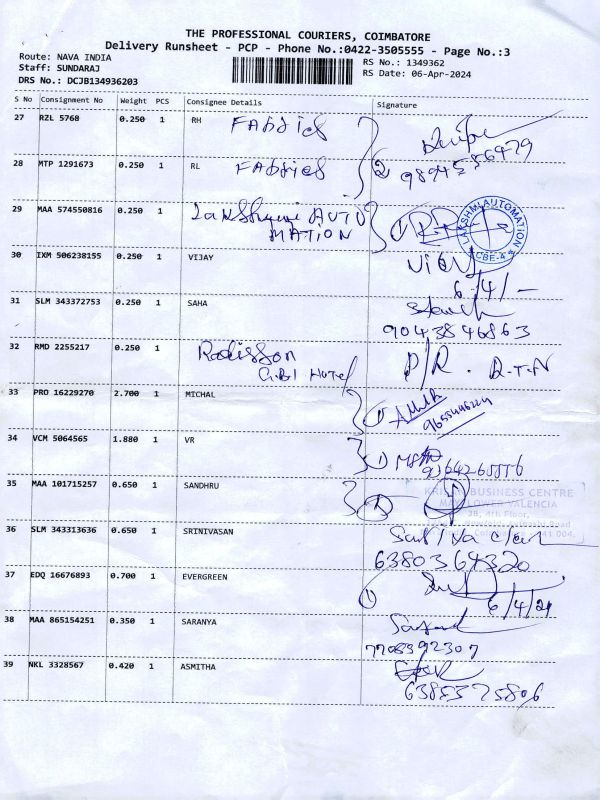 THE PROFESSIONAL COURIERS, COIMBATORE
Delivery Runsheet - PCP - Phone No.:0422-3505555 - Page No.:3
Route: NAVA INDIA
RS No.: 1349362
Staff: SUNDARAJ
RS Date: 06-Apr-2024
DRS No.: DCJB134936203
S No Consignment No Weight PCS Consignee Details Signature
27 RZL 5768 0.250 1 RH Fabrics
28 MTP 1291673 0.250 1 RL Fabrics 2
29 MAA 574550816 0.250 1 AUTO
MATION
LAKSHMI AUTOMATION
CBE-4
30 IXM 506238155 0.250 1 VIJAY
6/4/-
31 SLM 343372753 0.250 1 SAHA
9043846863
32 RMD 2255217 0.250 1 Radisson D/R. R.T.N
GBI Hotel
33 PRO 16229270 2.700 1 MICHAL 1
34 VCM 5064565 1.880 1 VR 1
35 MAA 101715257 0.650 1 SANDHRU 1
BUSINESS CENTRE
VALENCIA
3B, 4th Floor,
Road
641 004.
36 SLM 343313636 0.650 1 SRINIVASAN
6380364320
37 EDQ 16676893 0.700 1 EVERGREEN 1
6/4/24
38 MAA 865154251 0.350 1 SARANYA
7708392307
39 NKL 3328567 0.420 1 ASMITHA
6385375806